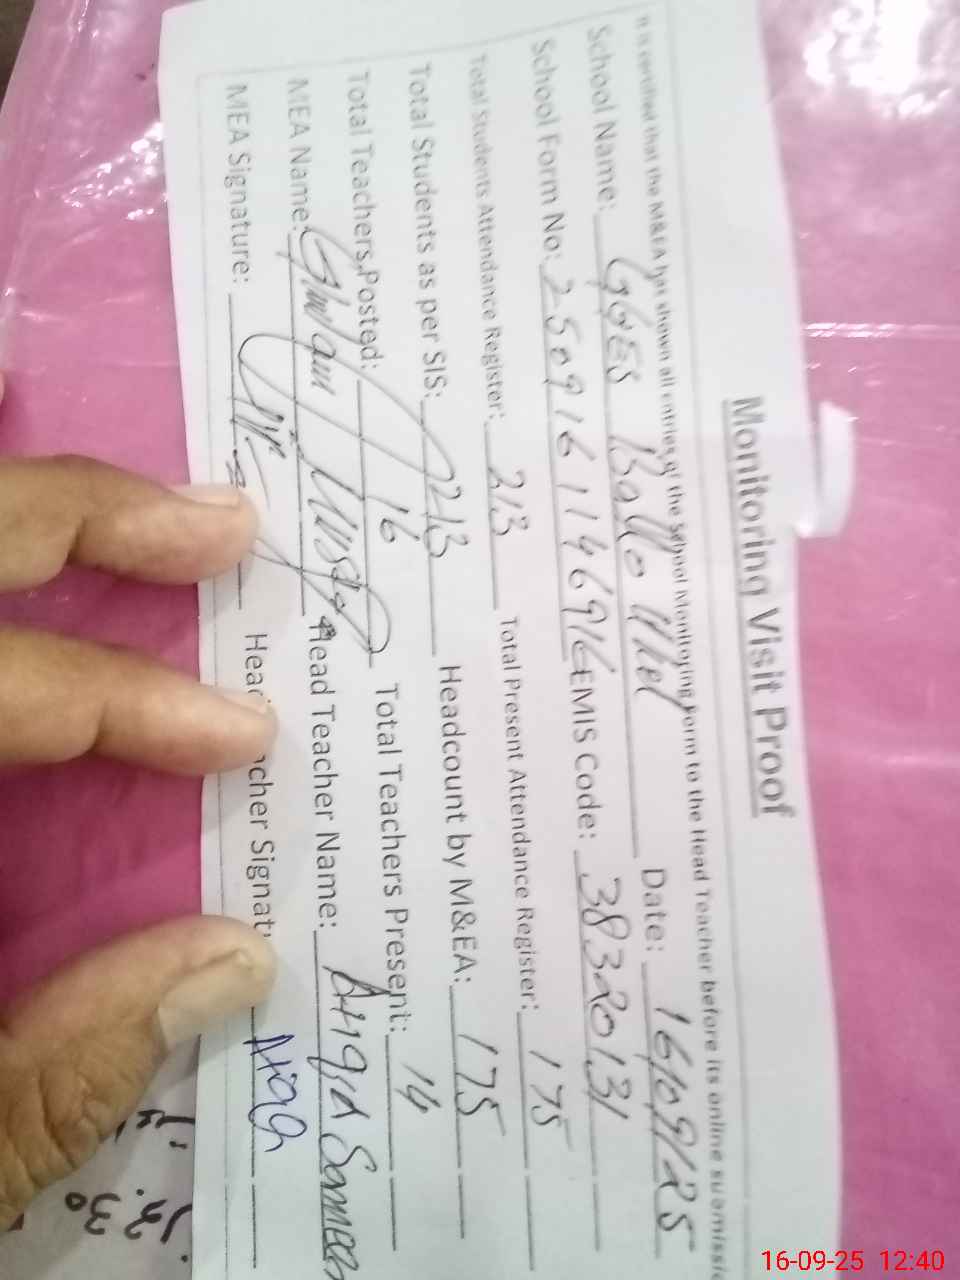 Monitoring Visit Proof
It is certified that the M&EA has shown all entries of the School Monitoring Form to the Head Teacher before its online submissio
School Name: GGES Date: 16/09/25
School Form No: 2509161146916 EMIS Code: 38320131
Total Students Attendance Register: 213 Total Present Attendance Register: 175
Total Students as per SIS: 213 Headcount by M&EA: 175
Total Teachers Posted: 16 Total Teachers Present: 14
MEA Name: Ghulam Mustafa Head Teacher Name: Atiqa
MEA Signature: Head cher Signat Atiqa
3.30
16-09-25 12:40